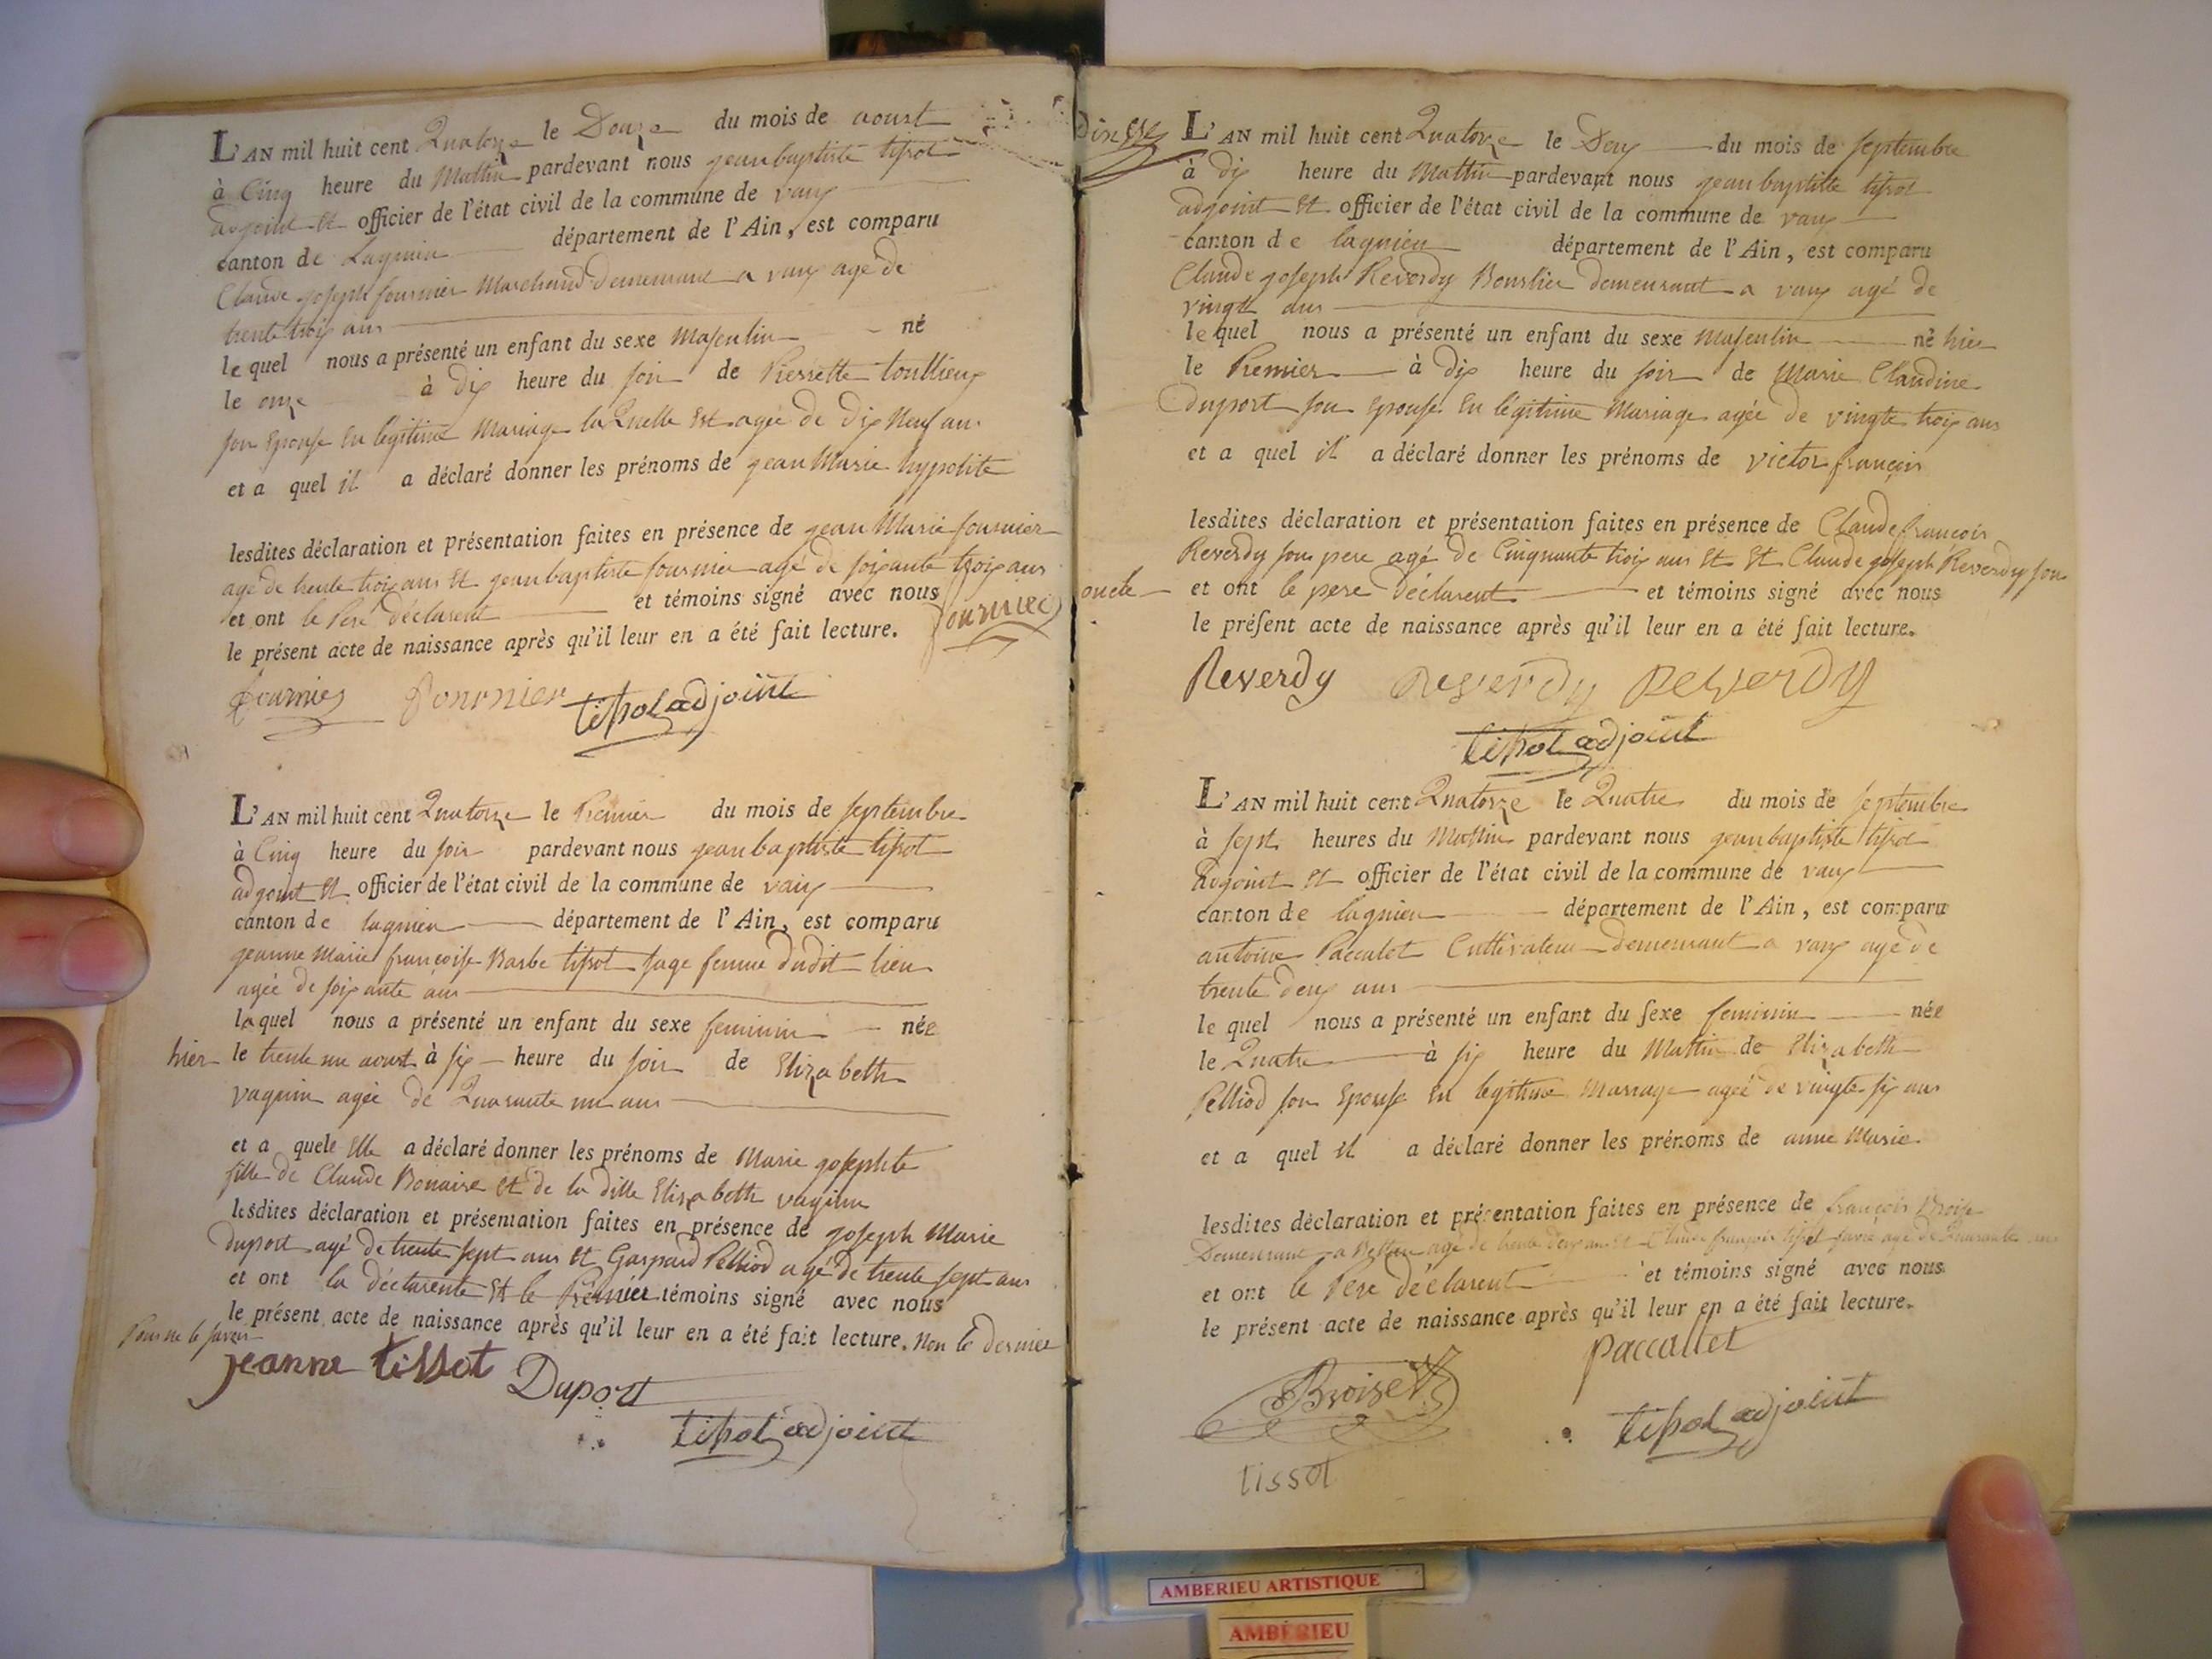 L'AN mil huit cent Quatorze le Douze du mois de aoust
à Cinq heure du Mattin pardevant nous jean baptiste tissot
adjoint Et officier de l'état civil de la commune de vaux
canton de Lagnieu département de l'Ain, est comparu
Claude joseph fournier Marchand demeurant a vaux agé de
trente trois ans
le quel nous a présenté un enfant du sexe Masculin né
le onze à dix heure du soir de Pierrette toullieux
son Epouse En legitime Mariage la Quelle Est agée de dix Neuf ans
et a quel il a déclaré donner les prénoms de jean Marie hypolite
lesdites déclaration et présentation faites en présence de jean Marie fournier
agé de trente trois ans Et jean baptiste fournier agé de soixante trois ans
et ont le Pere déclarent et témoins signé avec nous
le présent acte de naissance après qu'il leur en a été fait lecture. fournier
fournier fournier tissot adjoint
L'AN mil huit cent Quatorze le Premier du mois de septembre
à Cinq heure du soir pardevant nous jean baptiste tissot
adjoint Et officier de l'état civil de la commune de vaux
canton de lagnieu département de l'Ain, est comparu
jeanne Marie françoise Barbe tissot sage femme dudit lieu
agée de soixante ans
laquel nous a présenté un enfant du sexe feminin née
hier le trente un aoust à six heure du soir de Elizabeth
vaginn agée de Quarante un ans
et a quele Elle a déclaré donner les prénoms de Marie josephte
fille de Claude Bonaire Et de la ditte Elizabeth vaginn
lesdites déclaration et présentation faites en présence de joseph Marie
duport agé de trente sept ans Et Gaspard Pelliod agé de trente sept ans
et ont la déclarente Et le Premier témoins signé avec nous
le présent acte de naissance après qu'il leur en a été fait lecture. Non le dernier
Pour ne le savoir
jeanne tissot Duport
tissot adjoint
L'AN mil huit cent Quatorze le Deux du mois de septembre
à dix heure du Mattin pardevant nous jean baptiste tissot
adjoint Et officier de l'état civil de la commune de vaux
canton de lagnieu département de l'Ain, est comparu
Claude joseph Reverdy Bourlier demeurant a vaux agé de
vingt ans
le quel nous a présenté un enfant du sexe Masculin né hier
le Premier à dix heure du soir de Marie Claudine
duport son Epouse En légitime Mariage agée de vingte trois ans
et a quel il a déclaré donner les prénoms de victor françois
lesdites déclaration et présentation faites en présence de Claude françois
Reverdy son pere agé de Cinquante trois ans Et Et Claude joseph Reverdy son
oncle et ont le pere déclarent et témoins signé avec nous
le présent acte de naissance après qu'il leur en a été fait lecture.
Reverdy Reverdy Reverdy
tissot adjoint
L'AN mil huit cent Quatorze le Quatre du mois de septembre
à sept heures du Mattin pardevant nous jean baptiste tissot
Adjoint Et officier de l'état civil de la commune de vaux
canton de lagnieu département de l'Ain, est comparu
antoine Paccalet Cultivateur demeurant a vaux agé de
trente deux ans
le quel nous a présenté un enfant du sexe feminin née
le Quatre à six heure du Mattin de Elizabeth
Pelliod son Epouse En legitime Mariage agée de vingte six ans
et a quel il a déclaré donner les prénoms de anne Marie
lesdites déclaration et présentation faites en présence de françois Broise
Demeurant a Bettan agé de trente deux ans Et Claude françois tissot agé de Quarante ans
et ont le Pere déclarent et témoins signé avec nous
le présent acte de naissance après qu'il leur en a été fait lecture.
Paccallet
Broiset
tissot adjoint
tissot
AMBERIEU ARTISTIQUE
AMBÉRIEU